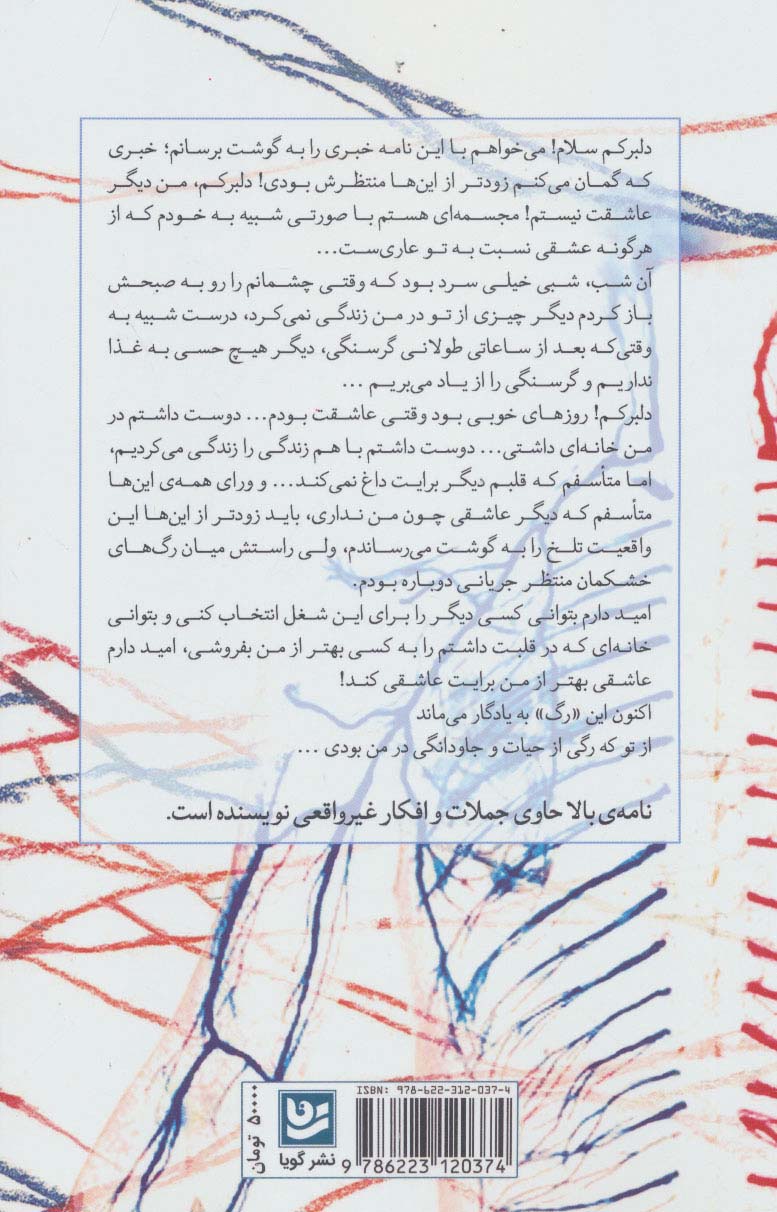 دلبرکم سلام! می‌خواهم با این نامه خبری را به گوشت برسانم؛ خبری
که گمان می‌کنم زودتر از این‌ها منتظرش بودی! دلبرکم، من دیگر
عاشقت نیستم! مجسمه‌ای هستم با صورتی شبیه به خودم که از
هرگونه عشقی نسبت به تو عاری‌ست...
آن شب، شبی خیلی سرد بود که وقتی چشمانم را رو به صبحش
باز کردم دیگر چیزی از تو در من زندگی نمی‌کرد، درست شبیه به
وقتی‌که بعد از ساعاتی طولانی گرسنگی، دیگر هیچ حسی به غذا
نداریم و گرسنگی را از یاد می‌بریم ...
دلبرکم! روزهای خوبی بود وقتی عاشقت بودم... دوست داشتم در
من خانه‌ای داشتی... دوست داشتم با هم زندگی را زندگی می‌کردیم،
اما متأسفم که قلبم دیگر برایت داغ نمی‌کند... و ورای همه‌ی این‌ها
متأسفم که دیگر عاشقی چون من نداری، باید زودتر از این‌ها این
واقعیت تلخ را به گوشت می‌رساندم، ولی راستش میان رگ‌های
خشکمان منتظر جریانی دوباره بودم.
امید دارم بتوانی کسی دیگر را برای این شغل انتخاب کنی و بتوانی
خانه‌ای که در قلبت داشتم را به کسی بهتر از من بفروشی، امید دارم
عاشقی بهتر از من برایت عاشقی کند!
اکنون این «رگ» به یادگار می‌ماند
از تو که رگی از حیات و جاودانگی در من بودی ...
نامه‌ی بالا حاوی جملات و افکار غیرواقعی نویسنده است.
ISBN: 978-622-312-037-4
9 786223 120374
نشر گویا
۵۰۰۰۰ تومان